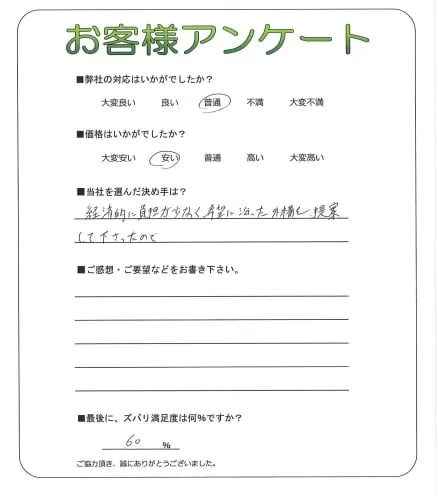 お客様アンケート
■弊社の対応はいかがでしたか？
大変良い 良い 普通 不満 大変不満
■価格はいかがでしたか？
大変安い 安い 普通 高い 大変高い
■当社を選んだ決め手は？
経済的に負担が少なく希望に沿った外構を提案
して下さったので
■ご感想・ご要望などをお書き下さい。
■最後に、ズバリ満足度は何％ですか？
60 ％
ご協力頂き、誠にありがとうございました。